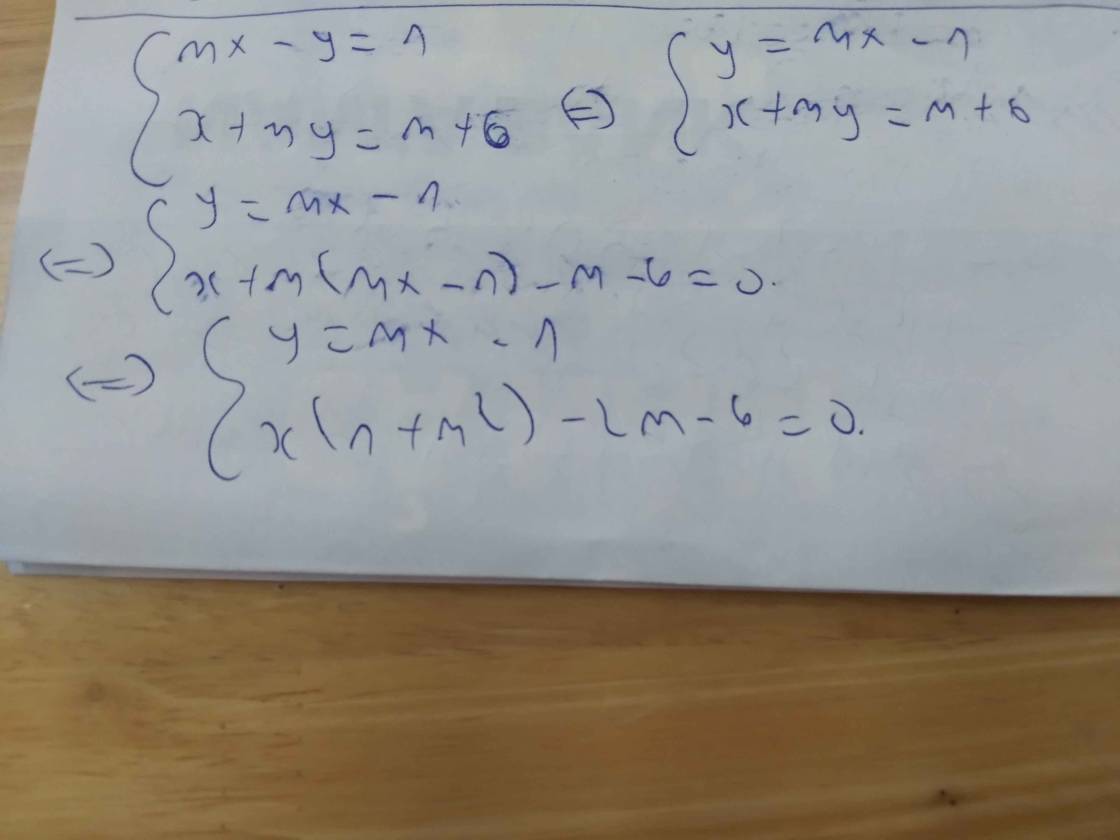 { mx - y = 1
x + my = m + 6 <=> { y = mx - 1
x + my = m + 6
<=> { y = mx - 1
x + m(mx - 1) - m - 6 = 0.
<=> { y = mx - 1
x(1 + m²) - 2m - 6 = 0.